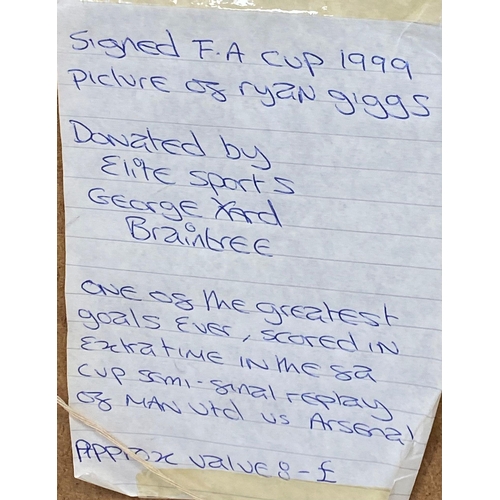 Signed F.A CUP 1999
picture of ryan giggs
Donated by
Elite Sports
George Yard
Braintree
one of the greatest
goals Ever, scored in
Extratime in the fa
cup semi-final replay
of MAN Utd vs Arsenal
Approx value :- £